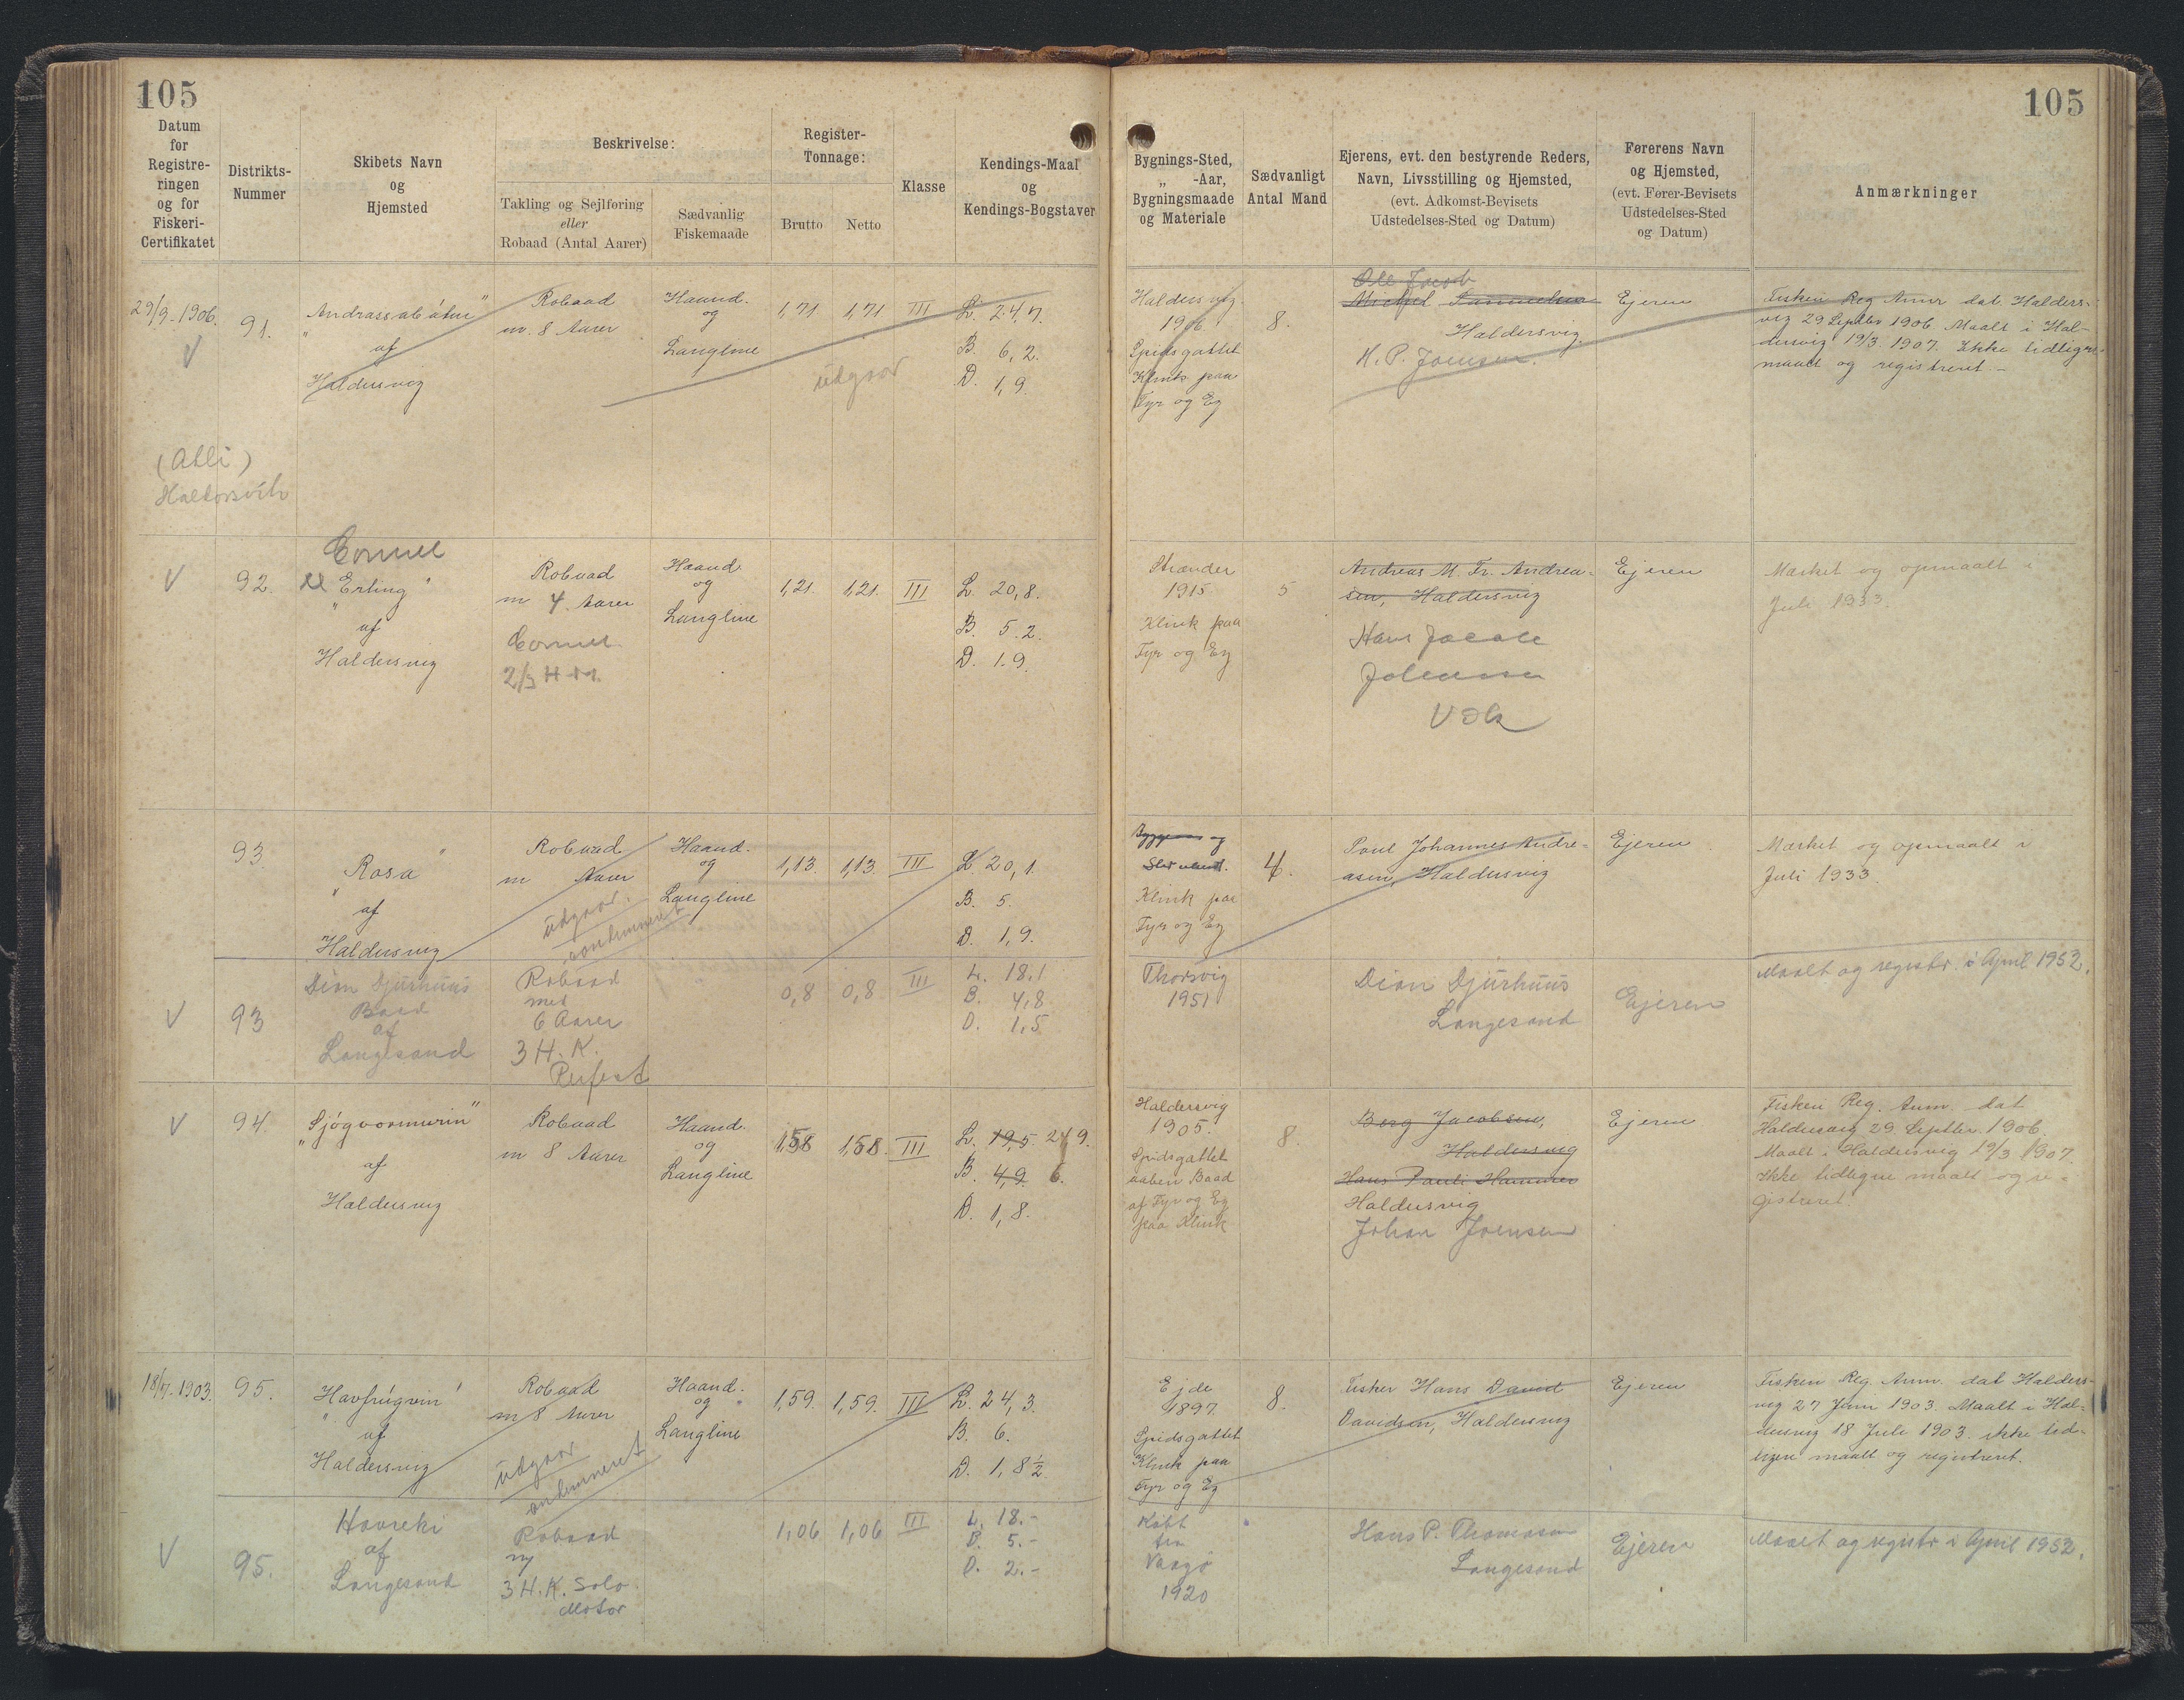 105
105
Datum
for
Registre-
ringen
og for
Fiskeri-
Certifikatet
Distrikts-
Nummer
Skibets Navn
og
Hjemsted
Beskrivelse:
Takling og Sejlføring
eller
Robaad (Antal Aarer)
Sædvanlig
Fiskemaade
Register-
Tonnage:
Brutto
Netto
Klasse
Kendings-Maal
og
Kendings-Bogstaver
Bygnings-Sted,
„ -Aar,
Bygningsmaade
og Materiale
Sædvanligt
Antal Mand
Ejerens, evt. den bestyrende Reders,
Navn, Livsstilling og Hjemsted,
(evt. Adkomst-Bevisets
Udstedelses-Sted og Datum)
Førerens Navn
og Hjemsted,
(evt. Fører-Bevisets
Udstedelses-Sted
og Datum)
Anmærkninger
29/9-1906.
V
91.
„Andrassabátur"
af
Haldersvig
Robaad
m. 8 Aarer
Haand-
og
Langline
1,71
1,71
III
L. 24,7.
B. 6,2.
D. 1,9.
udgaar
Haldersvig
1906.
Spidsgattet
Klink paa
Fyr og Eg
8.
Ole Jacob
Michel
Haldersvig.
H. P. Joensen.
Ejeren
Fiskeri Reg. Anm dat. Halders-
vig 29 Septbr 1906. Maalt i Hal-
dersvig 19/3 1907. Ikke tidligere
maalt og registreret.-
Haldorsvík
V
92.
„Erling"
af
Haldersvig
Robaad
m 4. Aarer
2/3 H-M.
Haand.
og
Langline
1,21.
1,21.
III
L. 20,8.
B. 5.2.
D. 1.9.
Strænder
1915
Klink paa
Fyr og Eg
5
Andreas M. Fr. Andrea-
sen, Haldersvig
Hans Jacob
Ejeren
Mærket og opmaalt i
Juli 1933.
93.
„Rosa"
af
Haldersvig
Robaad
m Aarer
udgaar.
condemneret
Haand.
og
Langline
1,13.
1,13.
III
L. 20,1.
B. 5.
D. 1,9.
Klink paa
Fyr og Eg
4.
Poul Johannes Andre-
asen, Haldersvig
Ejeren
Mærket og opmaalt i
Juli 1933.
V
93
Dion Djurhuus
Baad
af
Langesand
Robaad
med
6 Aarer
3 H. K.
Perfect
0,8
0,8
III
L. 18.1
B. 4,8
D. 1,5
Thorsvig
1951
Dion Djurhuus
Langesand
Ejeren
Maalt og registr. i April 1952.
V
94.
„Sjógvormurin"
af
Haldersvig
Robaad
m 8 Aarer
Haand.
og
Langline
1,58
1,58.
III
L. 19,5. 24 9.
B. 4,9. 6.
D. 1,8.
Haldersvig
1905.
Spidsgattet
aaben Baad
af Fyr og Eg
paa Klink
8.
Berg Jacobsen,
Haldersvig
Hans Pauli Hammer
Haldersvig
Johan Joensen
Ejeren
Fiskeri Reg. Anm. dat
Haldersvig 29 Septbr. 1906.
Maalt i Haldersvig 19/3 1907.
Ikke tidligere maalt og re-
gistreret.
18/7-1903.
95.
„Havfrúgvin"
af
Haldersvig
Robaad
m 8 Aarer
udgaar
condemneret
Haand.
og
Langline
1,59.
1,59.
III
L. 24,3.
B. 6.
D. 1,8½
Ejde
1897.
Spidsgattet
Klink paa
Fyr og Eg
8.
Fisker Hans David
Davidsen, Haldersvig
Ejeren
Fiskeri Reg. Anm. dat Halders-
vig 27 Juni 1903. Maalt i Hal-
dersvig 18 Juli 1903. ikke tid-
ligere maalt og registreret.
V
95.
Havreki
af
Langesand
Robaad
3 H. K. Solo
Motor
1,06
1,06
III
L. 18.-
B. 5.-
D. 2.-
Købt
fra
Vaagø
1920
Hans P. Thomasen
Langesand
Ejeren
Maalt og registr i April 1952.